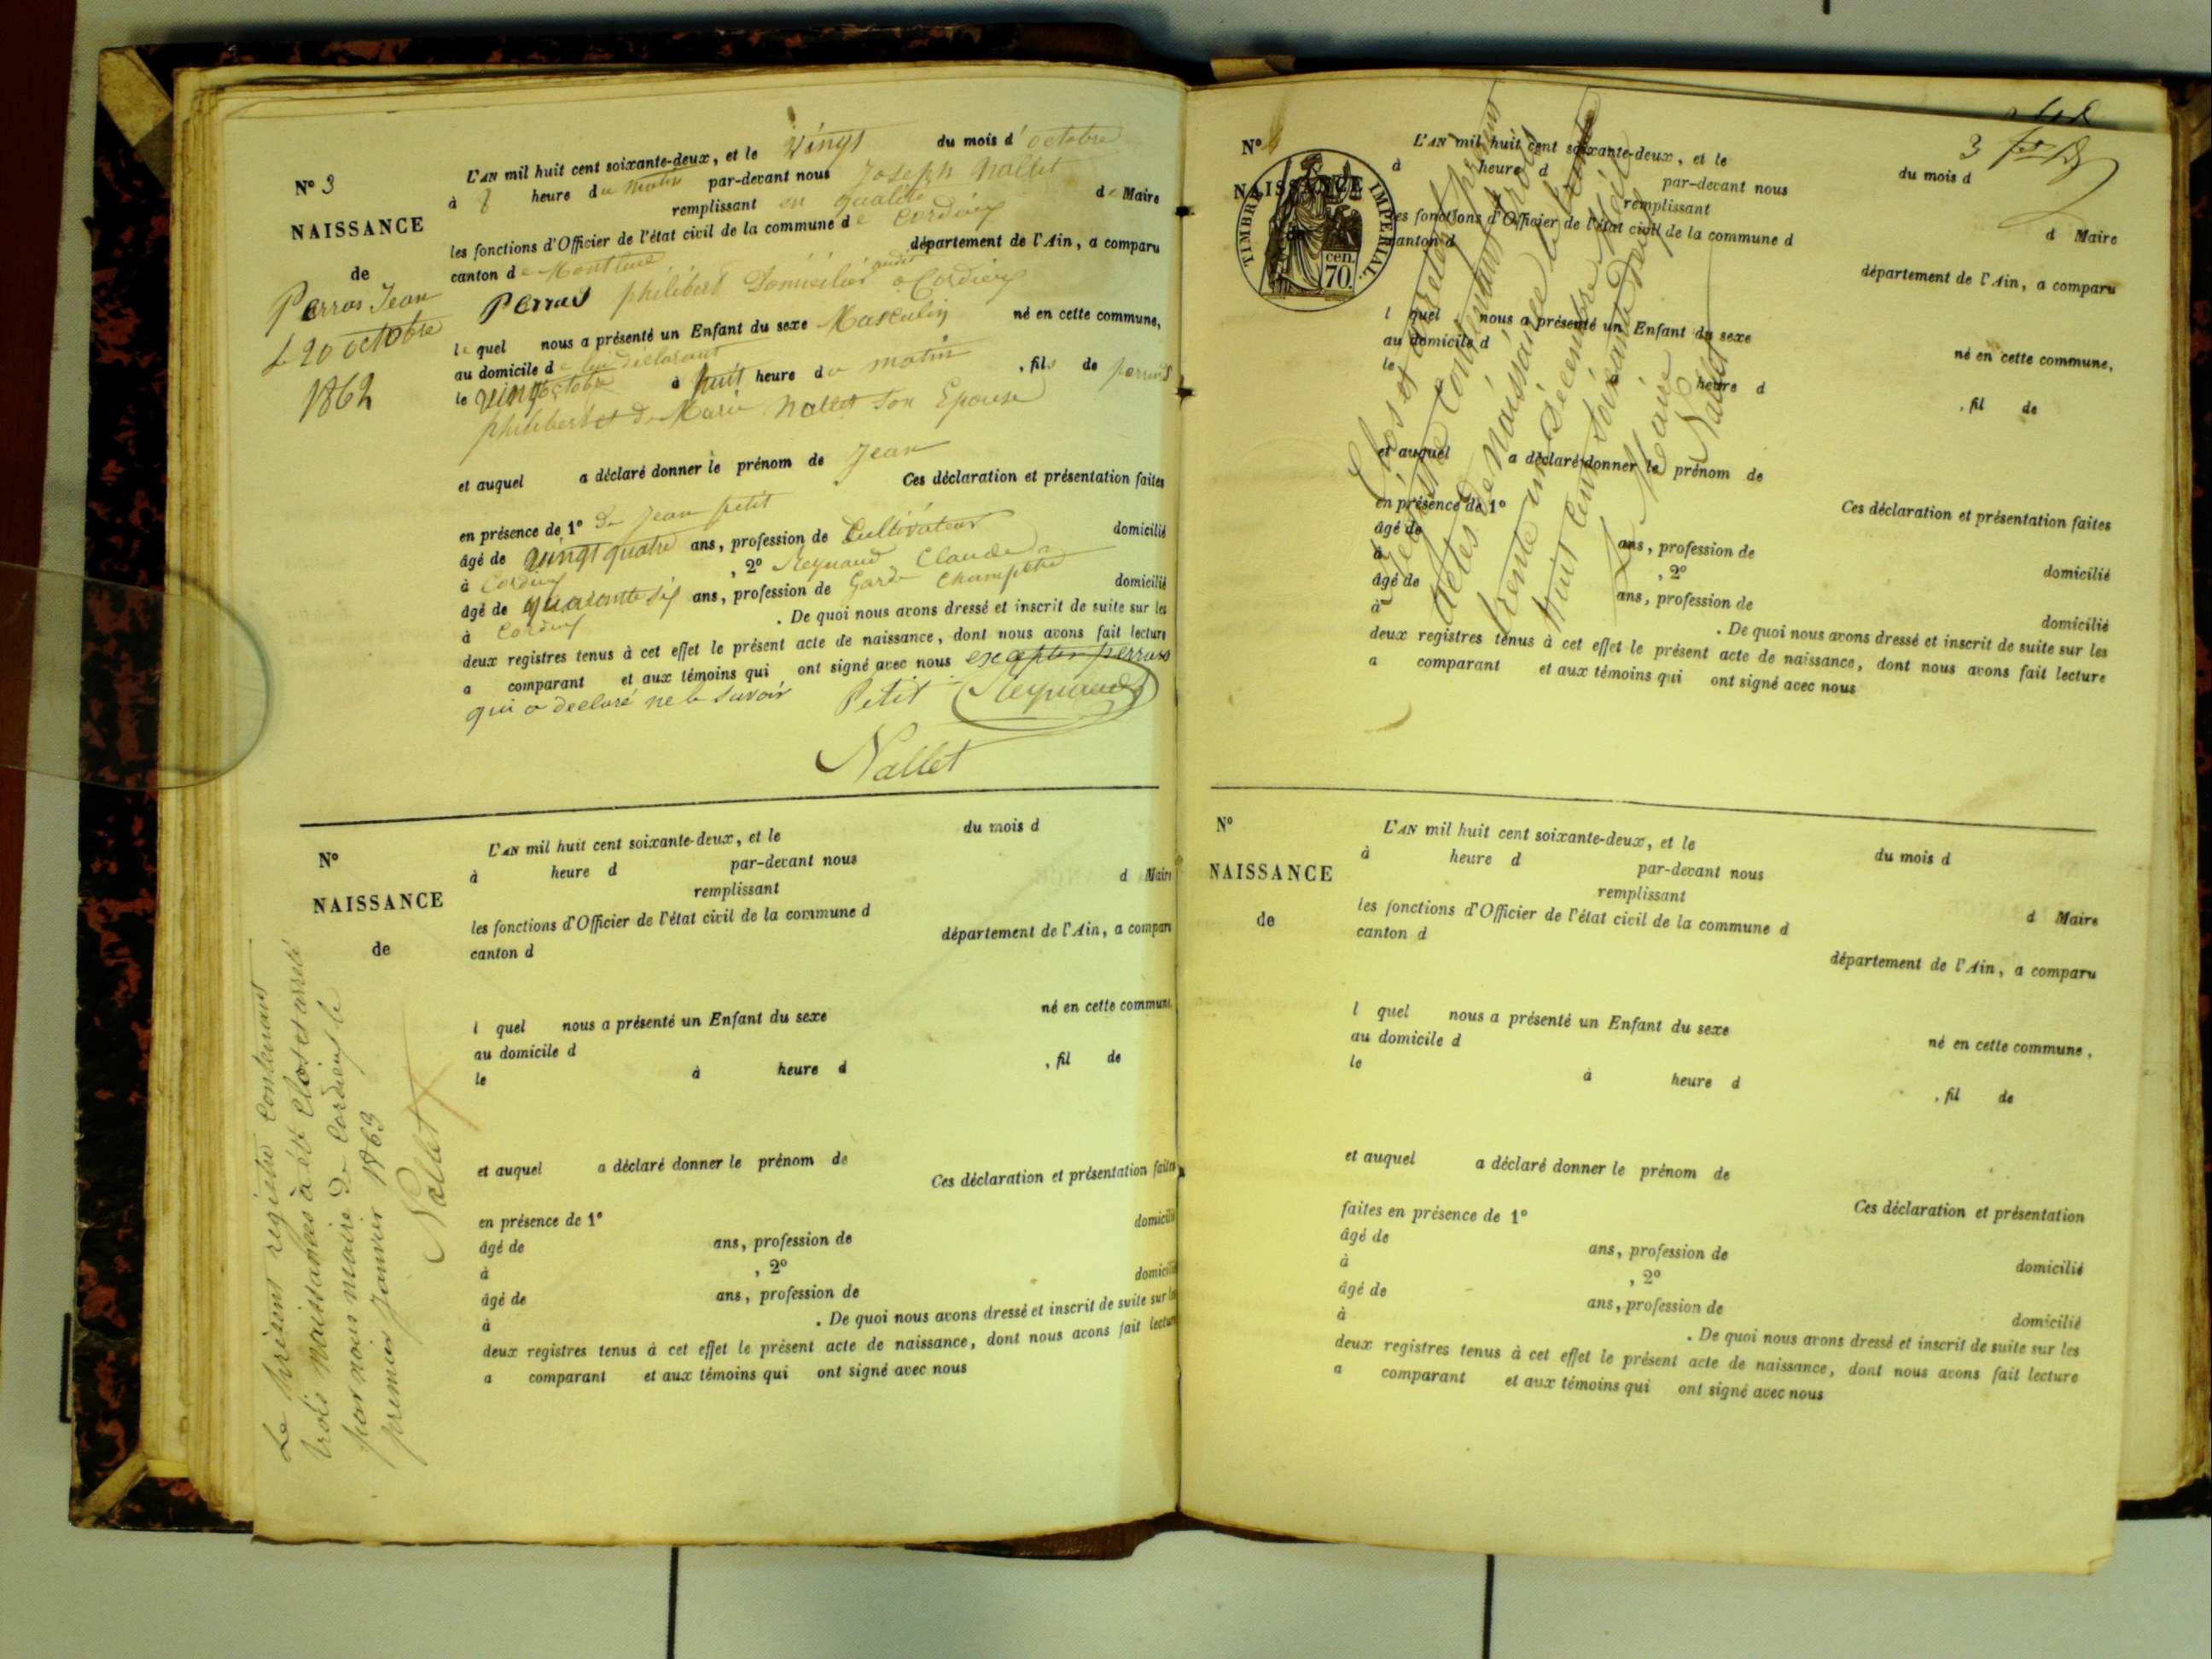 N° 3
NAISSANCE
de
Perras Jean
Le 20 octobre
1862
L'AN mil huit cent soixante-deux, et le vingt du mois d'octobre
à 8 heure du matin par-devant nous Joseph Nallet
remplissant en qualité de Maire
les fonctions d'Officier de l'état civil de la commune de Cordieux
canton de Montluel département de l'Ain, a comparu
Perras philibert Domicilié audit Cordieux
le quel nous a présenté un Enfant du sexe Masculin né en cette commune,
au domicile de lui déclarant
le vingt octobre à huit heure du matin, fils de perras
philibert et de Marie Nallet Son Epouse
et auquel a déclaré donner le prénom de Jean
Ces déclaration et présentation faites
en présence de 1° de Jean petit
âgé de vingt quatre ans, profession de Cultivateur domicilié
à Cordieux, 2° Reynaud Claude
âgé de quarante six ans, profession de Garde Champêtre domicilié
à Cordieux. De quoi nous avons dressé et inscrit de suite sur les
deux registres tenus à cet effet le présent acte de naissance, dont nous avons fait lecture
a comparant et aux témoins qui ont signé avec nous excepter perras
qui a déclaré ne le savoir Petit Reynaud
Nallet
N°
NAISSANCE
de
L'AN mil huit cent soixante-deux, et le du mois d
à heure d par-devant nous
remplissant d Maire
les fonctions d'Officier de l'état civil de la commune d
canton d département de l'Ain, a comparu
l quel nous a présenté un Enfant du sexe né en cette commune,
au domicile d
le à heure d , fil de
et auquel a déclaré donner le prénom de
Ces déclaration et présentation faites
en présence de 1°
âgé de ans, profession de domicilié
à , 2°
âgé de ans, profession de domicilié
à . De quoi nous avons dressé et inscrit de suite sur les
deux registres tenus à cet effet le présent acte de naissance, dont nous avons fait lecture
a comparant et aux témoins qui ont signé avec nous
Le présent registre contenant
trois naissances à été clos et arrêté
par nous maire de Cordieux le
premier Janvier 1863
Nallet
3
N°
NAISSANCE
TIMBRE IMPERIAL
70 cen.
L'AN mil huit cent soixante-deux, et le du mois d
à heure d par-devant nous
remplissant d Maire
les fonctions d'Officier de l'état civil de la commune d
canton d département de l'Ain, a comparu
l quel nous a présenté un Enfant du sexe né en cette commune,
au domicile d
le à heure d , fil de
et auquel a déclaré donner le prénom de
Ces déclaration et présentation faites
en présence de 1°
âgé de ans, profession de domicilié
à , 2°
âgé de ans, profession de domicilié
à . De quoi nous avons dressé et inscrit de suite sur les
deux registres tenus à cet effet le présent acte de naissance, dont nous avons fait lecture
a comparant et aux témoins qui ont signé avec nous
Clos et arrêté le présent
registre contenant trois
actes de naissance le
trente un Décembre mil
huit cent soixante deux
Le Maire
Nallet
N°
NAISSANCE
de
L'AN mil huit cent soixante-deux, et le du mois d
à heure d par-devant nous
remplissant d Maire
les fonctions d'Officier de l'état civil de la commune d
canton d département de l'Ain, a comparu
l quel nous a présenté un Enfant du sexe né en cette commune,
au domicile d
le à heure d , fil de
et auquel a déclaré donner le prénom de
Ces déclaration et présentation
faites en présence de 1°
âgé de ans, profession de domicilié
à , 2°
âgé de ans, profession de domicilié
à . De quoi nous avons dressé et inscrit de suite sur les
deux registres tenus à cet effet le présent acte de naissance, dont nous avons fait lecture
a comparant et aux témoins qui ont signé avec nous